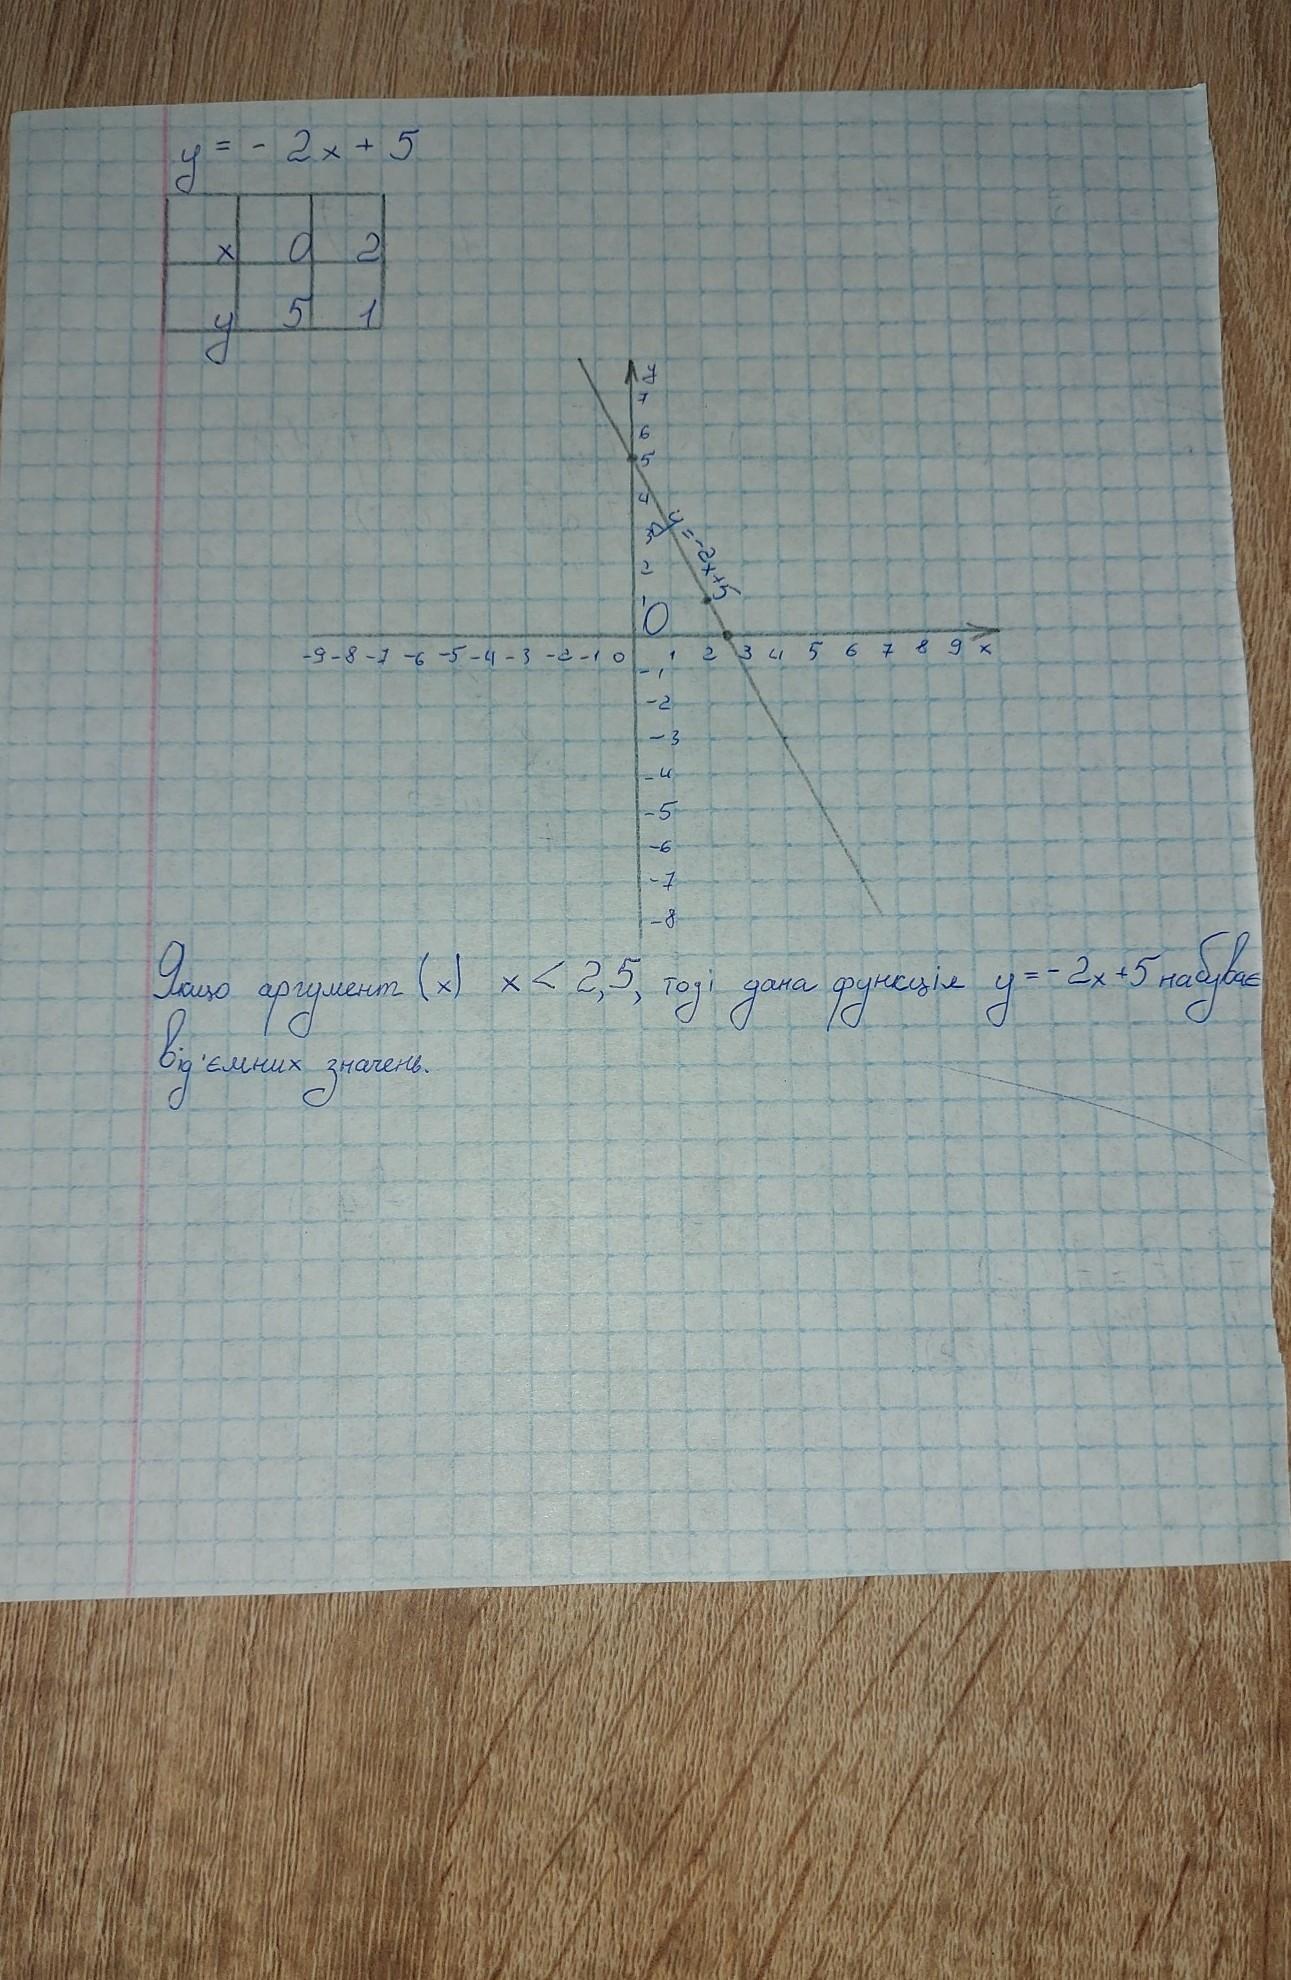 y = - 2x + 5
x 0 2
y 5 1
y
7
6
5
4
3
2
1
0
y = -2x+5
-9 -8 -7 -6 -5 -4 -3 -2 -1 0 1 2 3 4 5 6 7 8 9 x
-1
-2
-3
-4
-5
-6
-7
-8
Якщо аргумент (x) x < 2,5, тоді дана функція y = -2x+5 набуває
від'ємних значень.